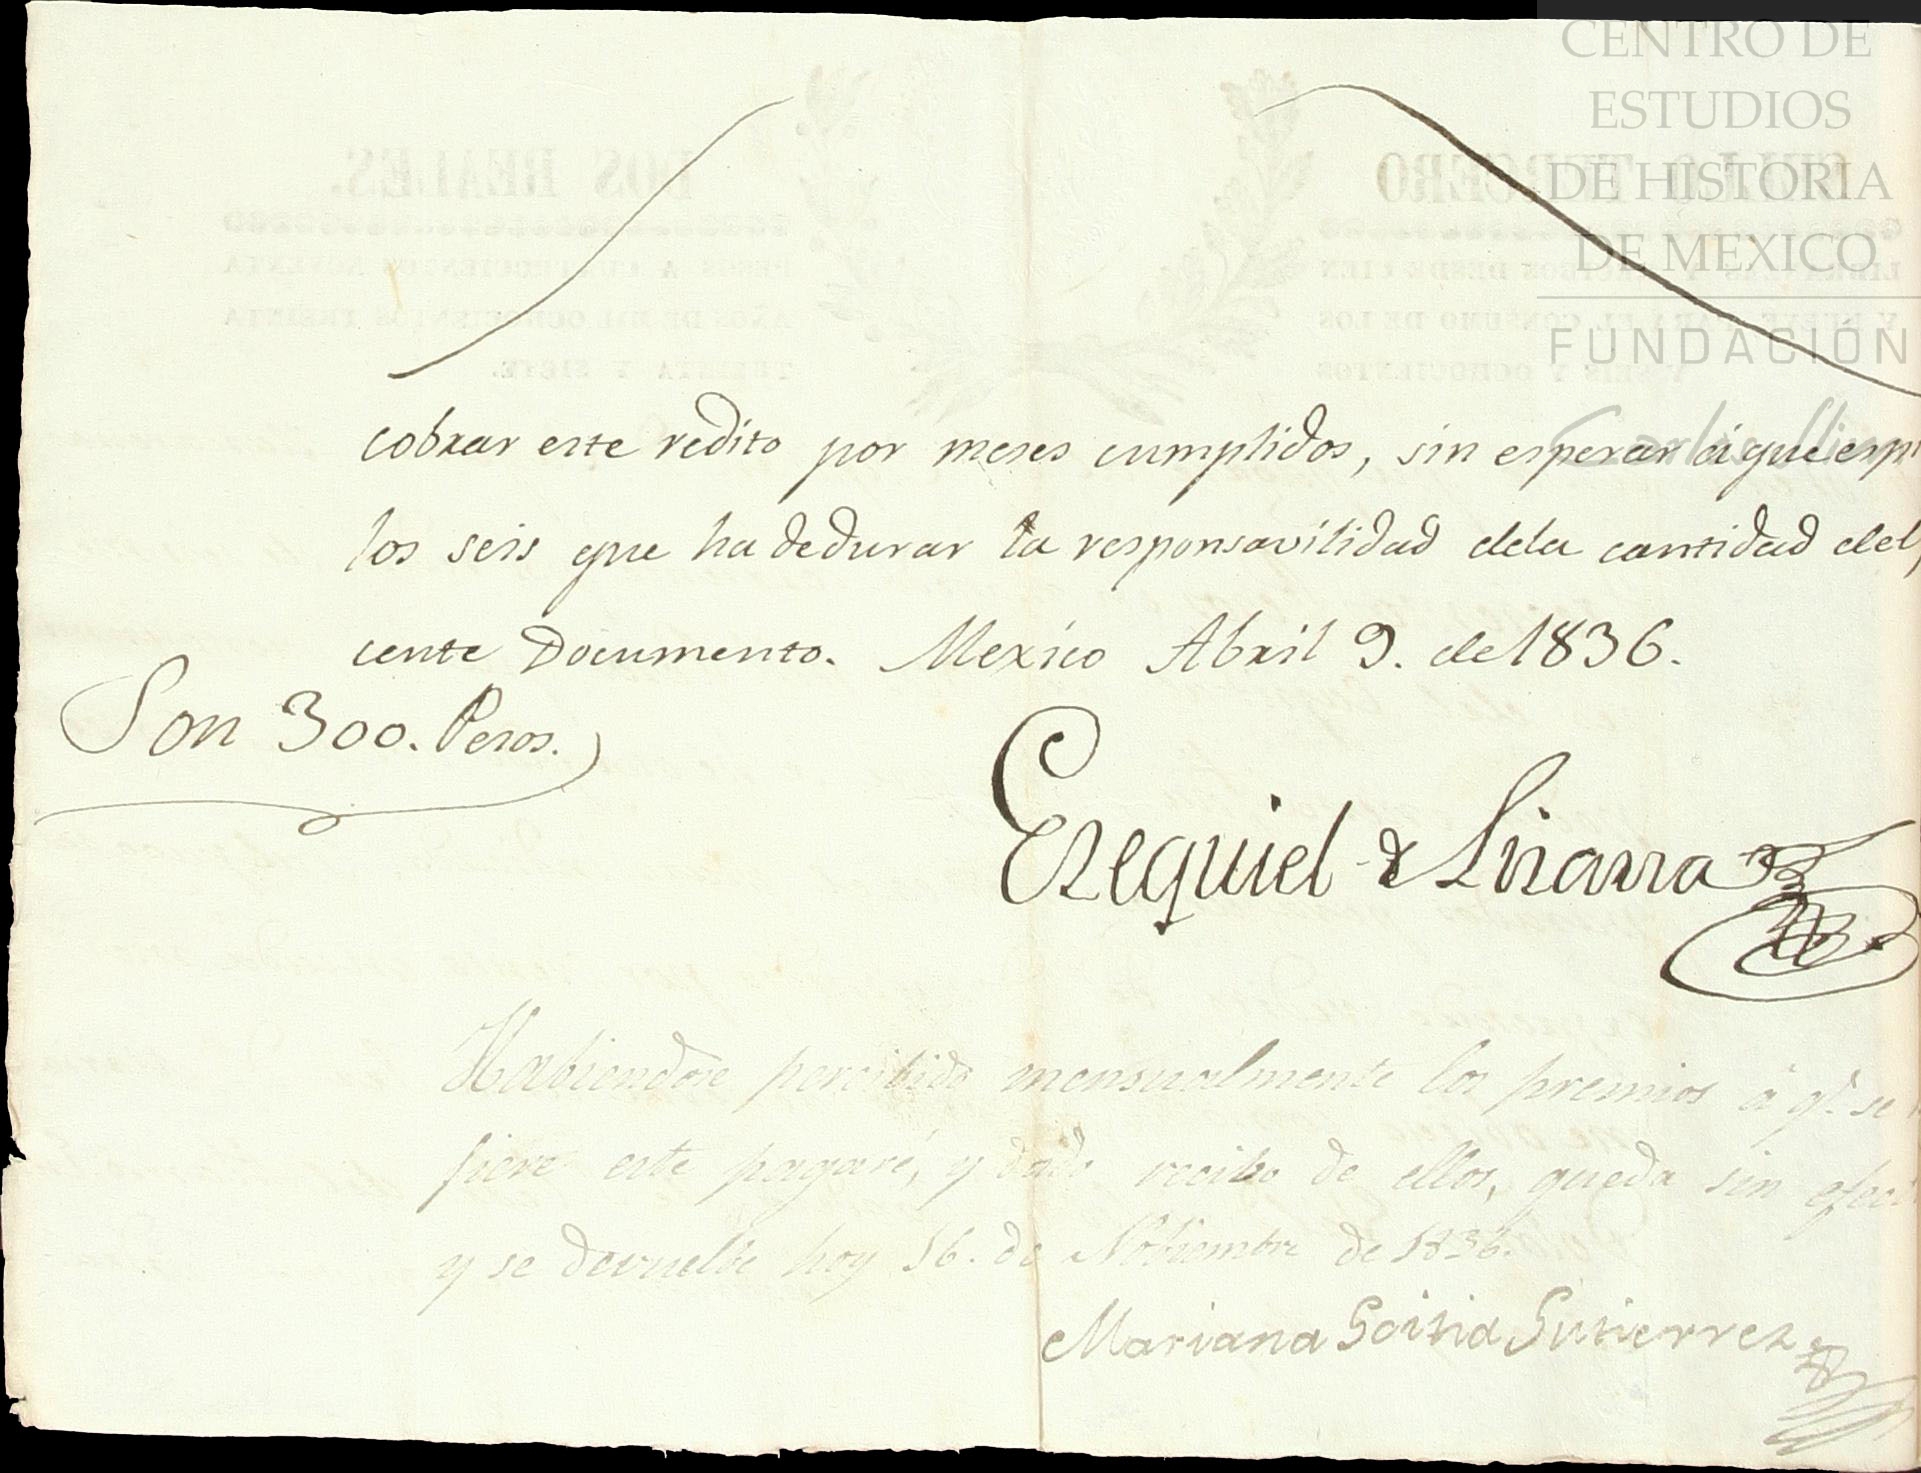 CENTRO DE
ESTUDIOS
DE HISTORIA
DE MEXICO
FUNDACIÓN
Carlos Slim
cobrar este redito por meses cumplidos, sin esperar á que espi
los seis que ha de durar la responsavilidad dela cantidad del
cente Documento. Mexico Abril 9. de 1836.
Son 300. Pesos.
Ezequiel de Lizarza
Habiendose percibido mensualmente los premios á qe. se
fiere este pagaré, y dado recibo de ellos, queda sin efec
y se devuelbe hoy 16. de Nobiembre de 1836.
Mariana Goitia Gutierrez